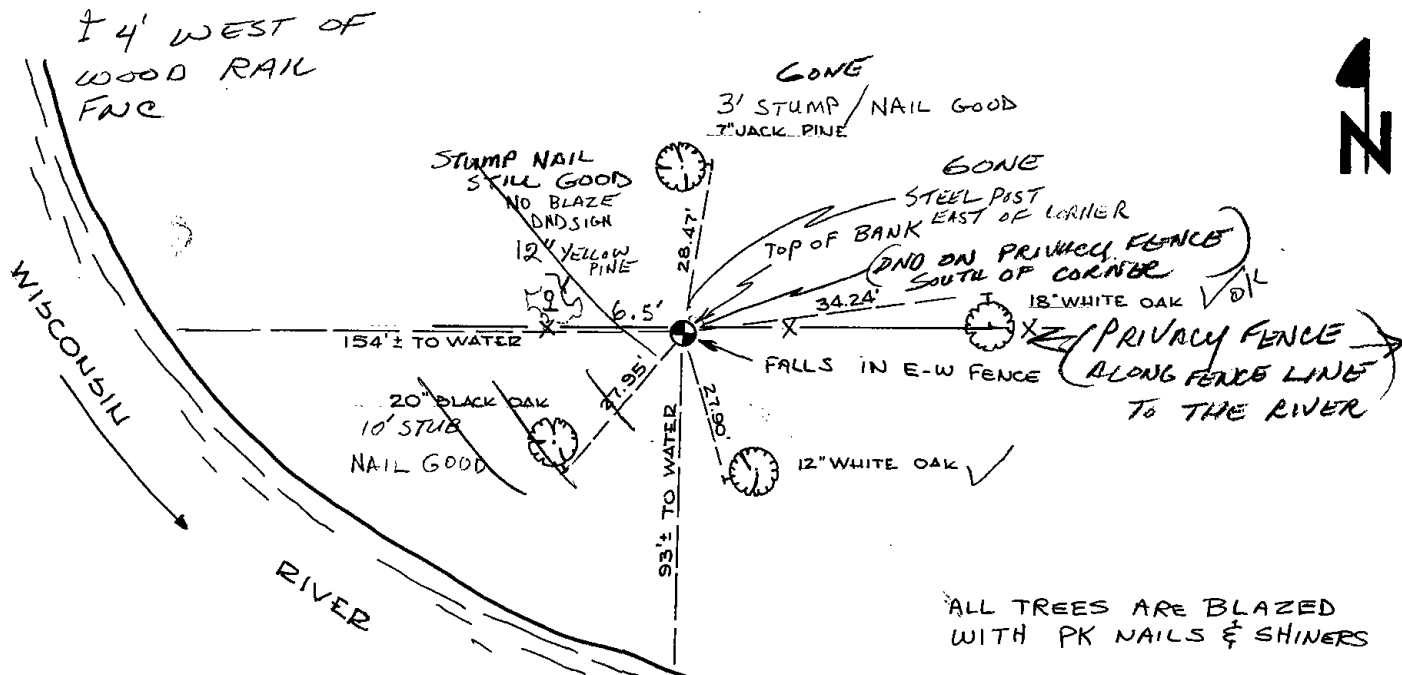 ± 4' WEST OF
WOOD RAIL
FNC
GONE
3' STUMP / NAIL GOOD
7" JACK PINE
N
STUMP NAIL
STILL GOOD
NO BLAZE
DND SIGN
12" YELLOW
PINE
28.47'
GONE
STEEL POST
EAST OF CORNER
TOP OF BANK
(DND ON PRIVACY FENCE)
SOUTH OF CORNER
34.24'
18" WHITE OAK √ OK
6.5'
154'± TO WATER
FALLS IN E-W FENCE
(PRIVACY FENCE
ALONG FENCE LINE
TO THE RIVER)
WISCONSIN
RIVER
37.95'
20" BLACK OAK
10' STUB
NAIL GOOD
27.90'
12" WHITE OAK √
93'± TO WATER
ALL TREES ARE BLAZED
WITH PK NAILS & SHINERS